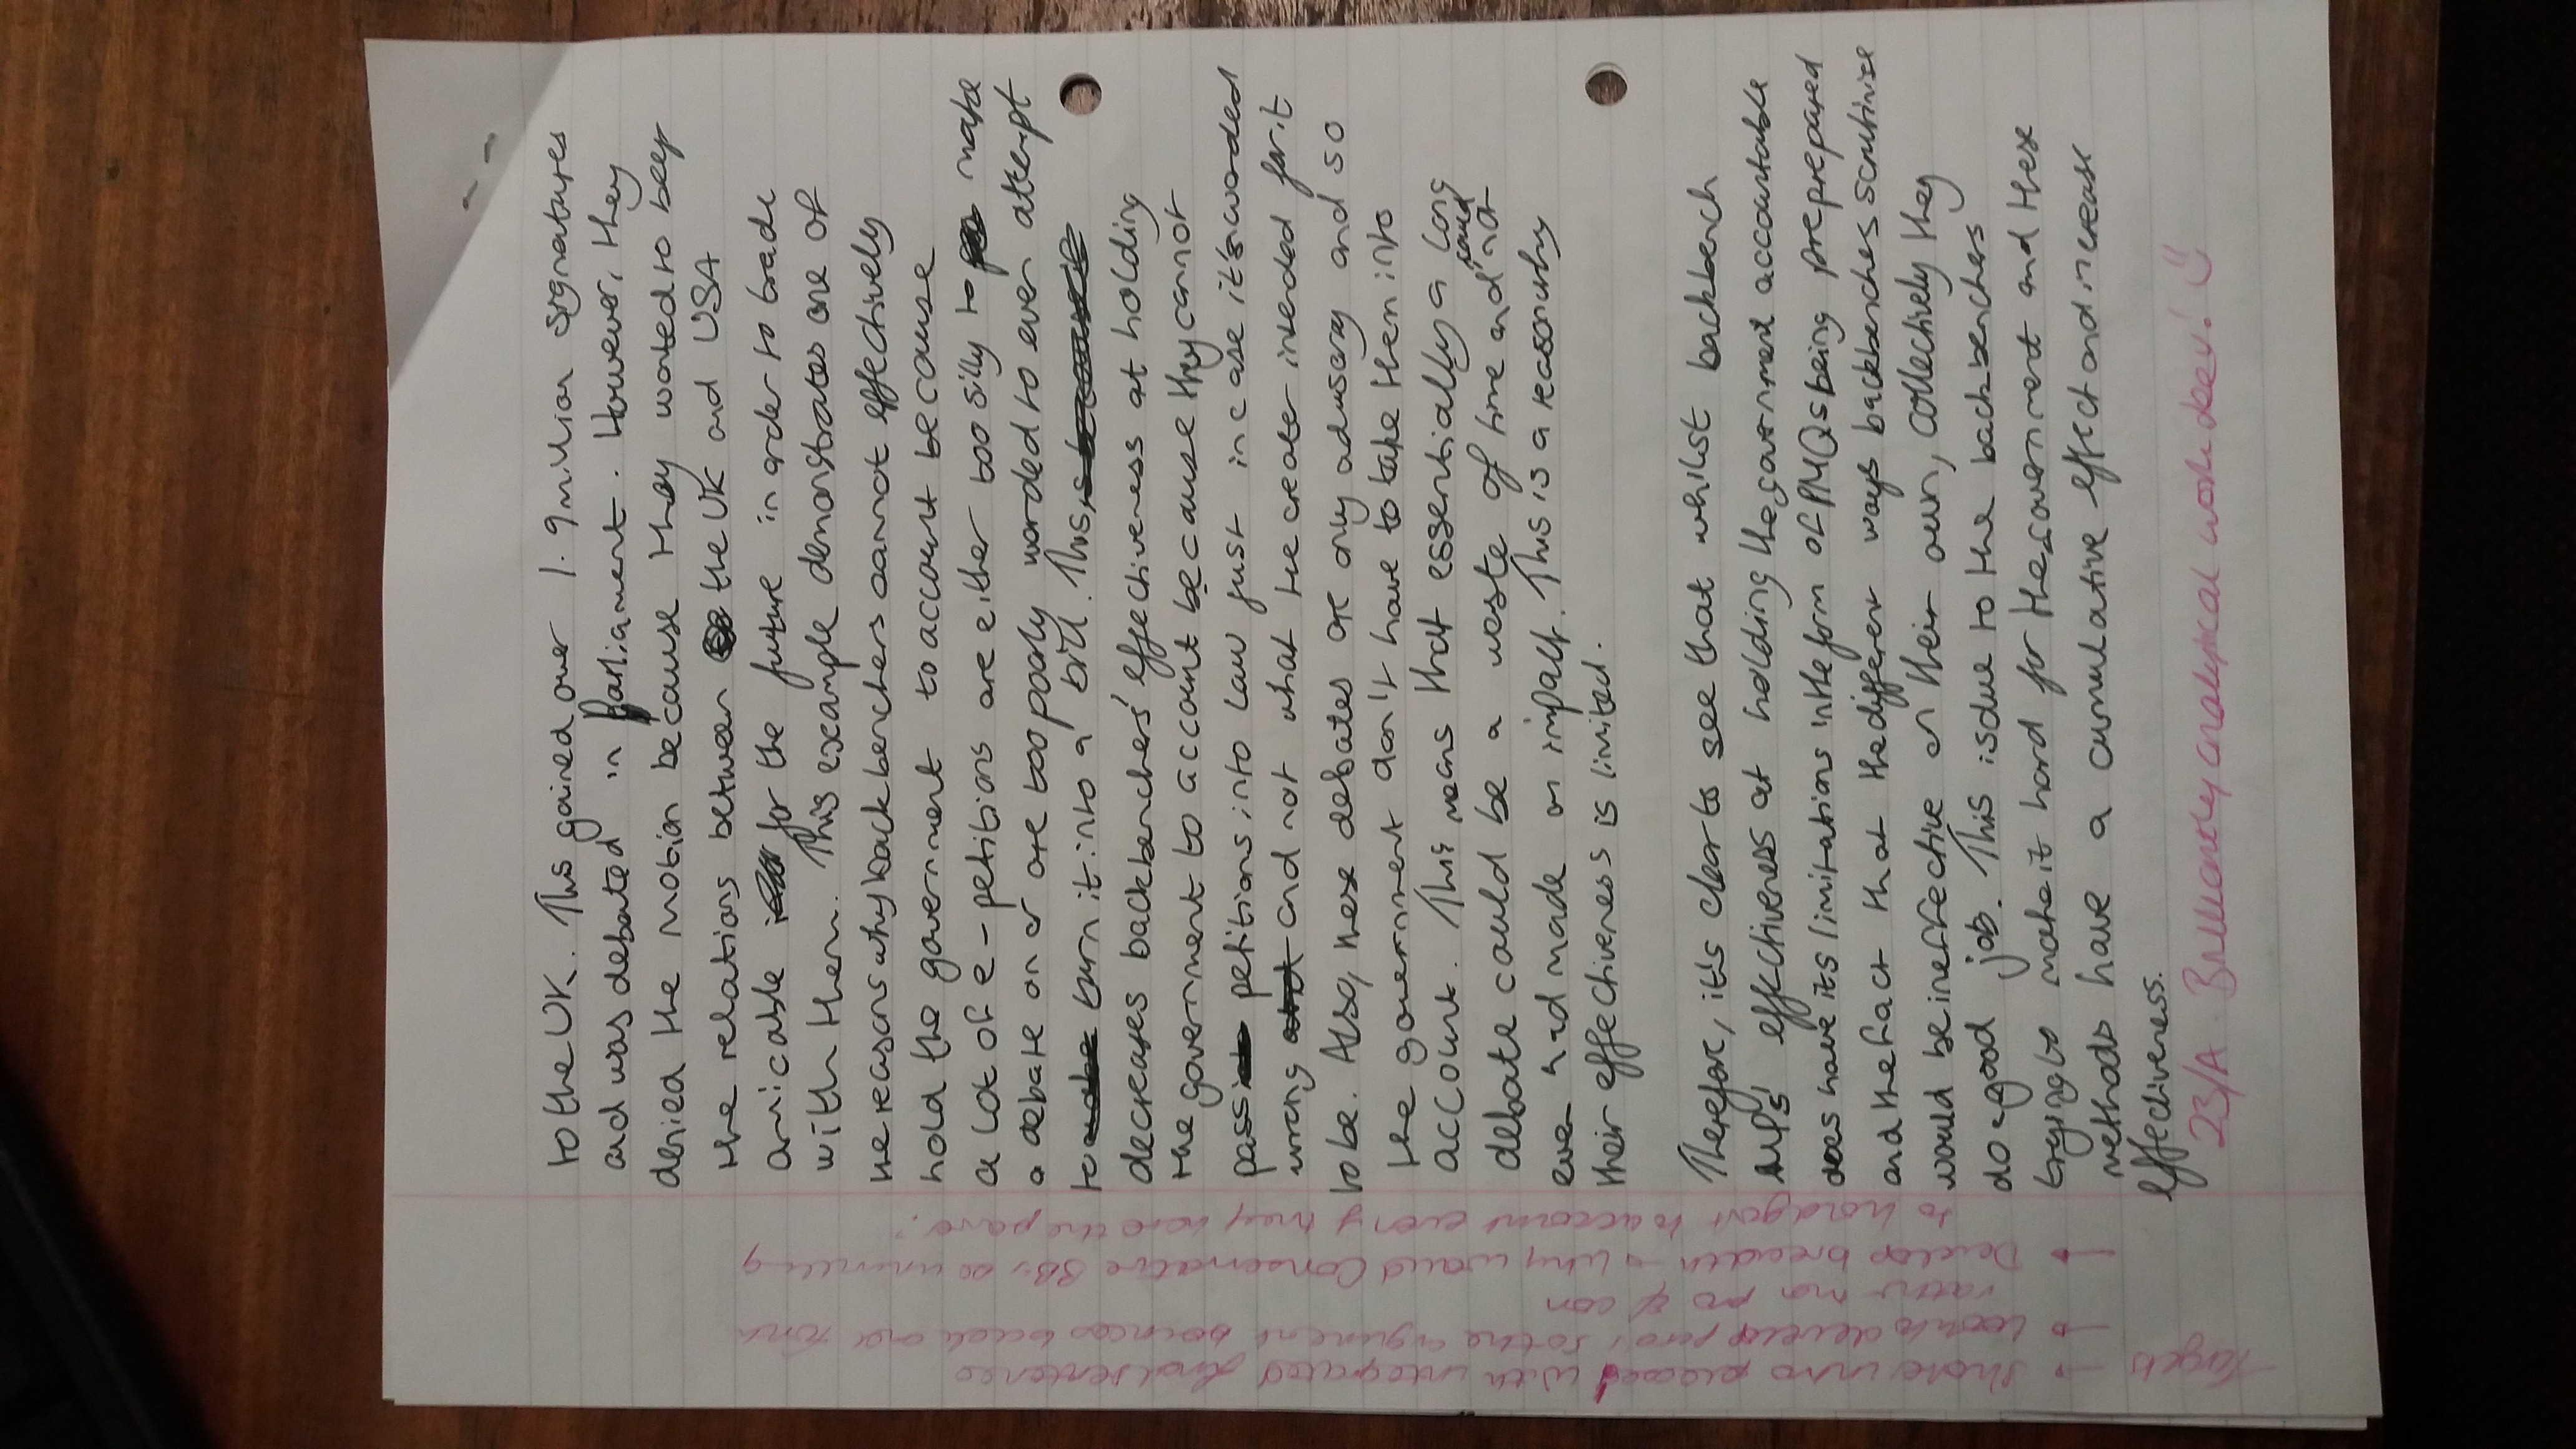 to the UK. This gained over 1.9 million signatures
and was debated in Parliament. However, they
denied the motion because they wanted to keep
the relations between the UK and USA
amicable for the future in order to trade
with them. This example demonstrates one of
the reasons why backbenchers cannot effectively
hold the government to account because
a lot of e-petitions are either too silly to make
a debate on or are too poorly worded to even attempt
to turn it into a bill. This
decreases backbenchers' effectiveness at holding
the government to account because they cannot
pass petitions into law just in case it's worded
wrong and not what the creator intended for it
to be. Also, these debates are only advisory and so
the government don't have to take them into
account. This means that essentially a long
debate could be a waste of time and not
even had made an impact. This is a reason why
their effectiveness is limited.
Therefore, it's clear to see that whilst backbench
MPs' effectiveness at holding the government accountable
does have its limitations in the form of PMQs being preprepared
and the fact that the different ways backbenches scrutinise
would be ineffective on their own, collectively they
do a good job. This is due to the backbenchers
trying to make it hard for the government and these
methods have a cumulative effect and increase
effectiveness.
23/A. Brilliantly analytical work deev! ☺
Targets
→ Share intro with integrated final sentence
→ Look to develop paras so the argument bounces back and forth
rather than pro & con
→ Develop breadth → Why would Conservative BBs be unwilling
to hold govt to account even if they have the power?